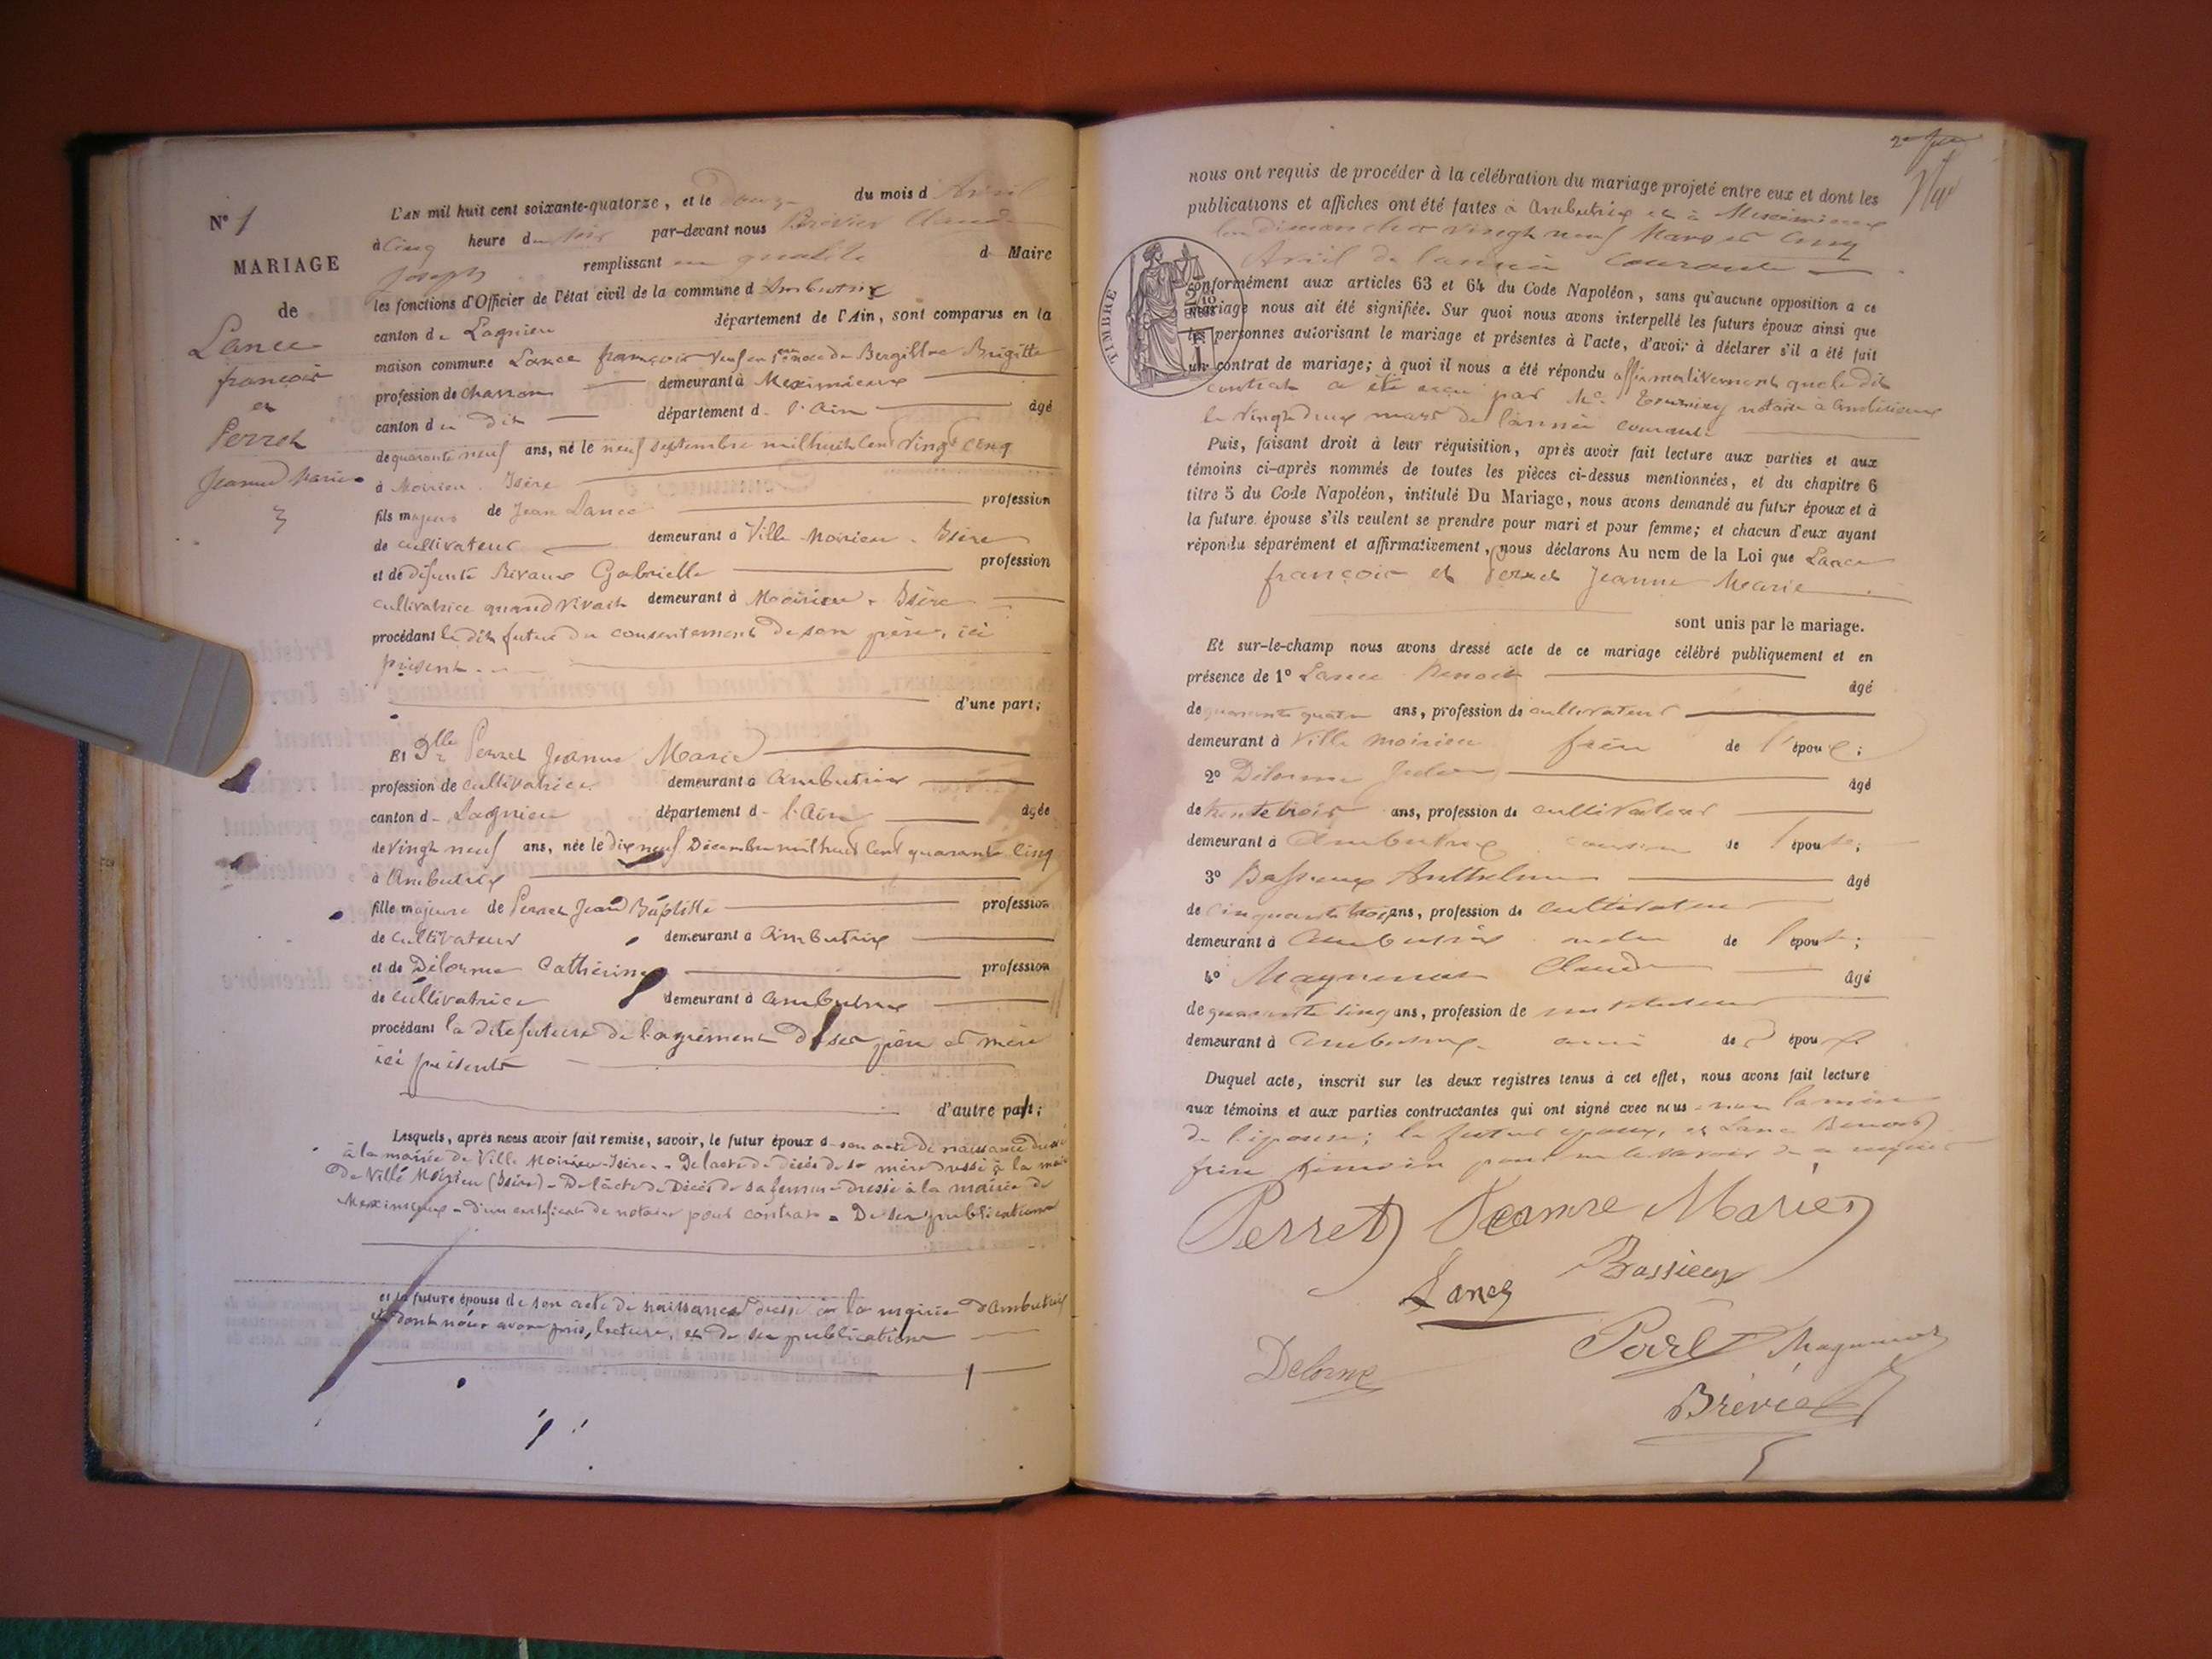 N° 1
MARIAGE
de
Lance
françois
et
Perret
Jeanne Marie
L'AN mil huit cent soixante-quatorze, et le Douze du mois d Avril
à Cinq heure du soir par-devant nous Brévier Claude
Joseph remplissant en qualité d Maire
les fonctions d'Officier de l'état civil de la commune d Ambutrix
canton de Lagnieu département de l'Ain, sont comparus en la
maison commune Lance françois Veuf en de Brigitte
profession de Charron demeurant à Meximieux
canton d u dit département d l'Ain âgé
de quarante neuf ans, né le neuf septembre mil huit Cent Vingt Cinq
à Moirieu Isère
fils majeur de Jean Lance profession
de cultivateur demeurant à Ville Moirieu Isère
et de défunte Rivaux Gabrielle profession
cultivatrice quand vivait demeurant à Moirieu Isère
procédant le dit futur du consentement de son père, ici
présent
d'une part;
Et Dlle Perret Jeanne Marie
profession de cultivatrice demeurant à Ambutrix
canton d Lagnieu département d l'Ain âgée
de Vingt neuf ans, née le dix neuf Décembre mil huit Cent quarante Cinq
à Ambutrix
fille majeure de Perret Jean Baptiste profession
de cultivateur demeurant à Ambutrix
et de Délorme Cathérine profession
de cultivatrice demeurant à Ambutrix
procédant la dite future de l'agrément de ses père et mère
ici présents
d'autre part;
Lesquels, après nous avoir fait remise, savoir, le futur époux d son acte de naissance dressé
à la mairie de Ville Moirieu Isère - De l'acte de décès de sa mère dressé à la mairie
de Ville Moirieu (Isère) - De l'acte de Décès de sa femme dressé à la mairie de
Meximieux - d'un certificat de notaire pour contrat - De ses publications
et la future épouse de son acte de naissance dressé à la mairie d'Ambutrix
dont nous avons pris lecture, et de ses publications
2e
nous ont requis de procéder à la célébration du mariage projeté entre eux et dont les
publications et affiches ont été faites à Ambutrix et à Meximieux
les dimanches vingt neuf Mars et Cinq
Avril de l'année courante
TIMBRE
2/10
EN SUS
conformément aux articles 63 et 64 du Code Napoléon, sans qu'aucune opposition a ce
mariage nous ait été signifiée. Sur quoi nous avons interpellé les futurs époux ainsi que
les personnes autorisant le mariage et présentes à l'acte, d'avoir à déclarer s'il a été fait
un contrat de mariage; à quoi il nous a été répondu affirmativement que le dit
contrat a été reçu par Me notaire à
le Vingt deux mars de l'année courante
Puis, faisant droit à leur réquisition, après avoir fait lecture aux parties et aux
témoins ci-après nommés de toutes les pièces ci-dessus mentionnées, et du chapitre 6
titre 5 du Code Napoléon, intitulé Du Mariage, nous avons demandé au futur époux et à
la future épouse s'ils veulent se prendre pour mari et pour femme; et chacun d'eux ayant
répondu séparément et affirmativement, nous déclarons Au nom de la Loi que Lance
françois et Perret Jeanne Marie
sont unis par le mariage.
Et sur-le-champ nous avons dressé acte de ce mariage célébré publiquement et en
présence de 1° Lance Benoit âgé
de quarante quatre ans, profession de cultivateur
demeurant à Ville Moirieu frère de l'époux;
2° Délorme âgé
de trente trois ans, profession de cultivateur
demeurant à Ambutrix cousin de l'épouse;
3° Bassieux Anthelme âgé
de cinquante trois ans, profession de cultivateur
demeurant à Ambutrix oncle de l'épouse;
4° Magnenot Claude âgé
de quarante cinq ans, profession de instituteur
demeurant à Ambutrix ami de époux
Duquel acte, inscrit sur les deux registres tenus à cet effet, nous avons fait lecture
aux témoins et aux parties contractantes qui ont signé avec nous non la mère
de l'épouse; le futur époux, et Lance Benoit
frère témoin pour ne le savoir de ce requis
Perret Jeanne Marie
Bassieux
Lance
Magnenot
Delorme
Brévier